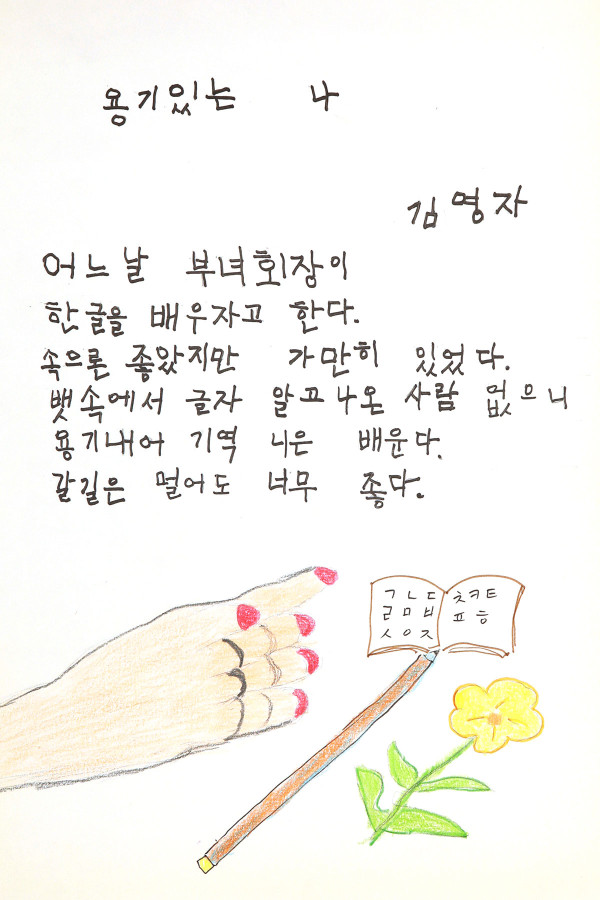 용기있는 나
김영자
어느날 부녀회장이
한글을 배우자고 한다.
속으론 좋았지만 가만히 있었다.
뱃속에서 글자 알고나온 사람 없으니
용기내어 기역 니은 배운다.
갈길은 멀어도 너무 좋다.
ㄱㄴㄷ ㅊㅋㅌ
ㄹㅁㅂ ㅍㅎ
ㅅㅇㅈ